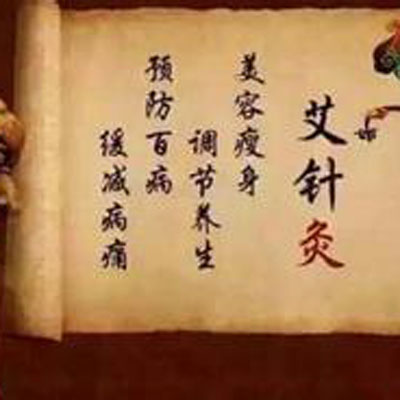 艾针灸
美容瘦身
调节养生
预防百病
缓减病痛